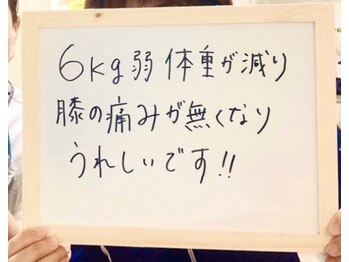 6kg弱 体重が減り
膝の痛みが無くなり
うれしいです!!